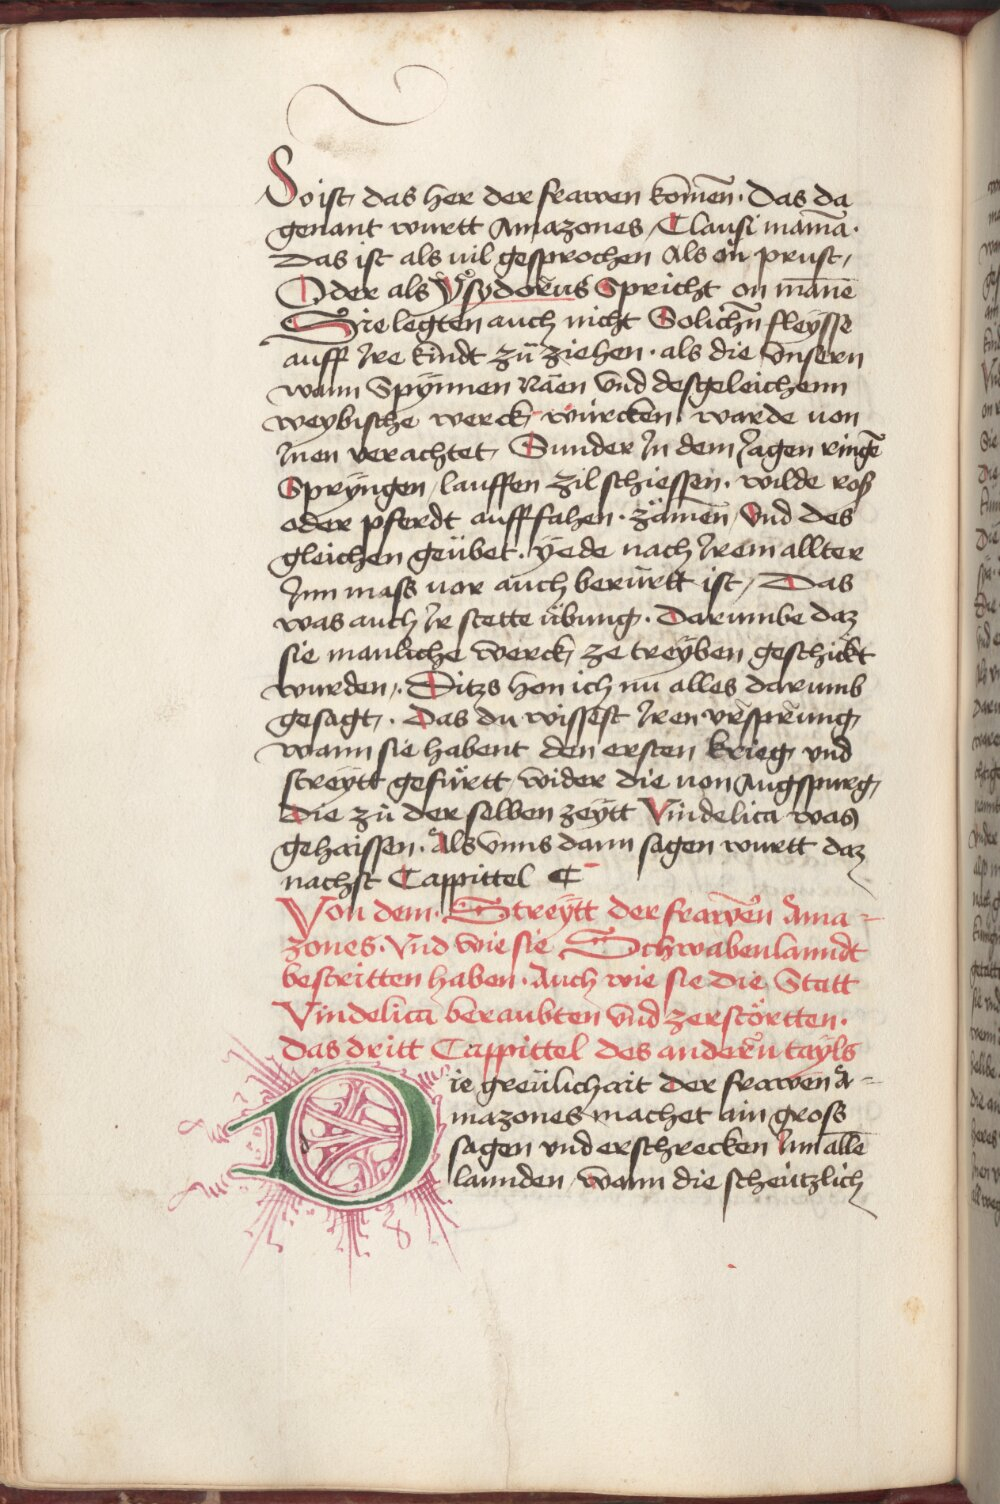 So ist das her der frawen komē̄n · Das da
genant wurtt Amazones / Clausi mam̄a ·
Das ist als uil gesprochen Als ōn prust /
Oder als Ÿsydorus Spricht on man̄e
Sie legten auch nicht Solichn̄ fleÿsse
auff Jre kindt zū ziehen · als die Vnsern
wann Spÿnnen Näen Vnd desgeleichenn
weybische werck würcken · warde uon
Jnen verachtet / Sunder Jn dem Jagen ringē
Sprÿngen / lauffen zil schiessen · wilde roß
oder pferdt auff fahen · zämen / Vnd des
gleichen geübet · ÿede nach Jrem allter
Jnn mass uor auch berürtt ist / Das
was auch Jr stette übung · Darumbe daz
sie manliche werck ze treÿben geschickt
wurden / · Ditzs hon ich nu alles darumb
gesagt / · Das du wissest Jren vrsprung
wann sie habent den ersten krieg vnd
streÿtt gefürtt / wider die uon Augspurg /
die zū der selben zeÿtt Vindelica was
gehaissen · Als vnns dann sagen wurtt daz
nachst Cappittel C
Von dem · Streÿtt der frawen Ama =
zones · Vnd wie sie Schwabenlanndt
bestritten haben · Auch wie sie die Statt
Vindelica beraubten vnd zerstörtten ·
das dritt Cappittel des andern tayls
Die greülichait der frawen A =
mazones machet ain gross
sagen vnd erschrecken Jnn allē
lannden / wann die scheützlich